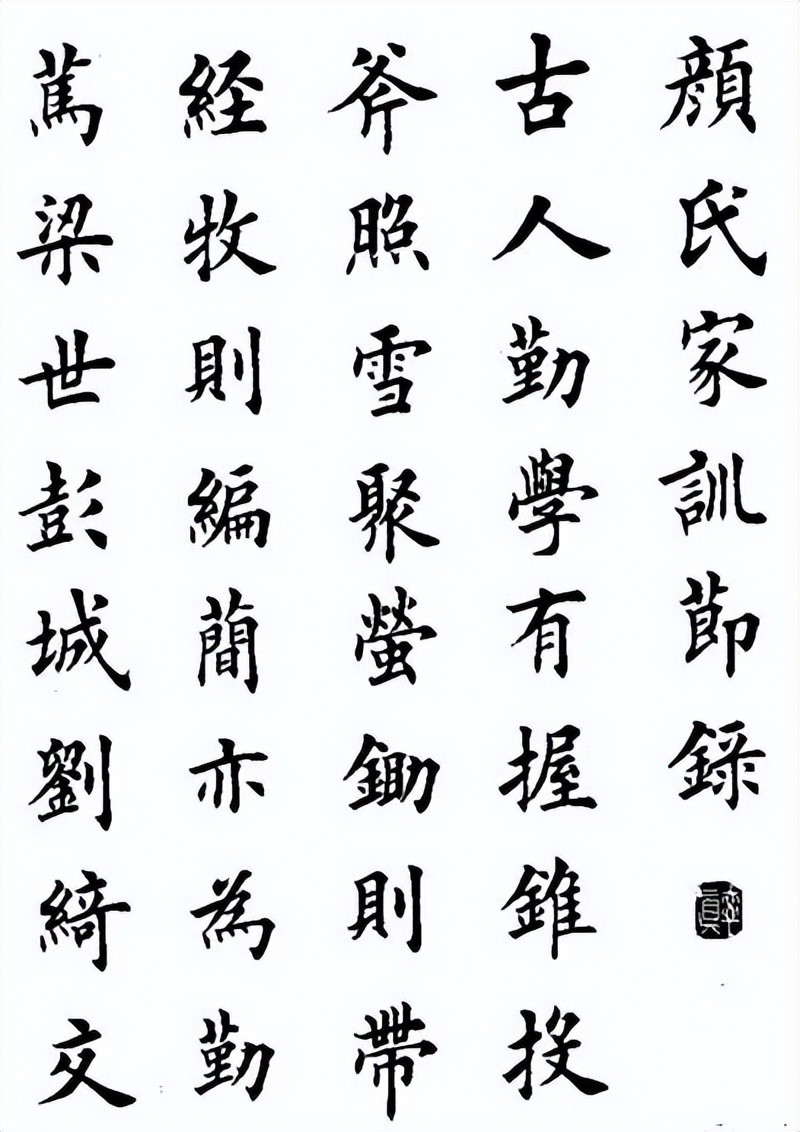 顔氏家訓節録
古人勤學有握錐投
斧照雪聚螢鋤則帶
経牧則編簡亦為勤
篤梁世彭城劉綺交